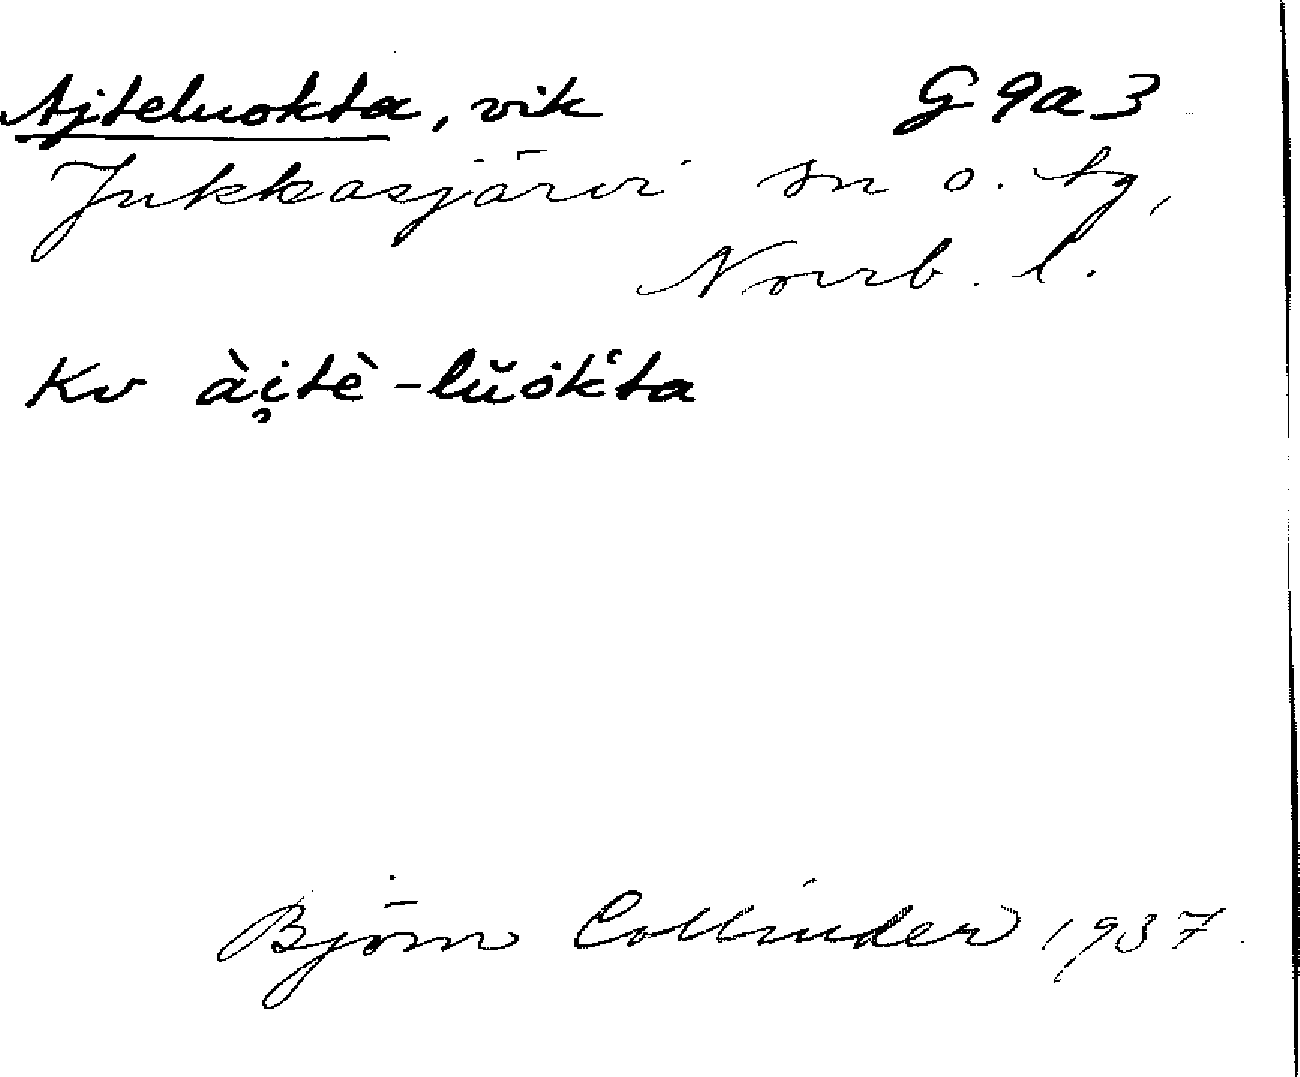 Ajteluokta, vik G 9a 3
Jukkasjärvi sn o. tg,
Norrb. l.
Kv ài̯tè-lŭok̔ta
Björn Collinder 1937.